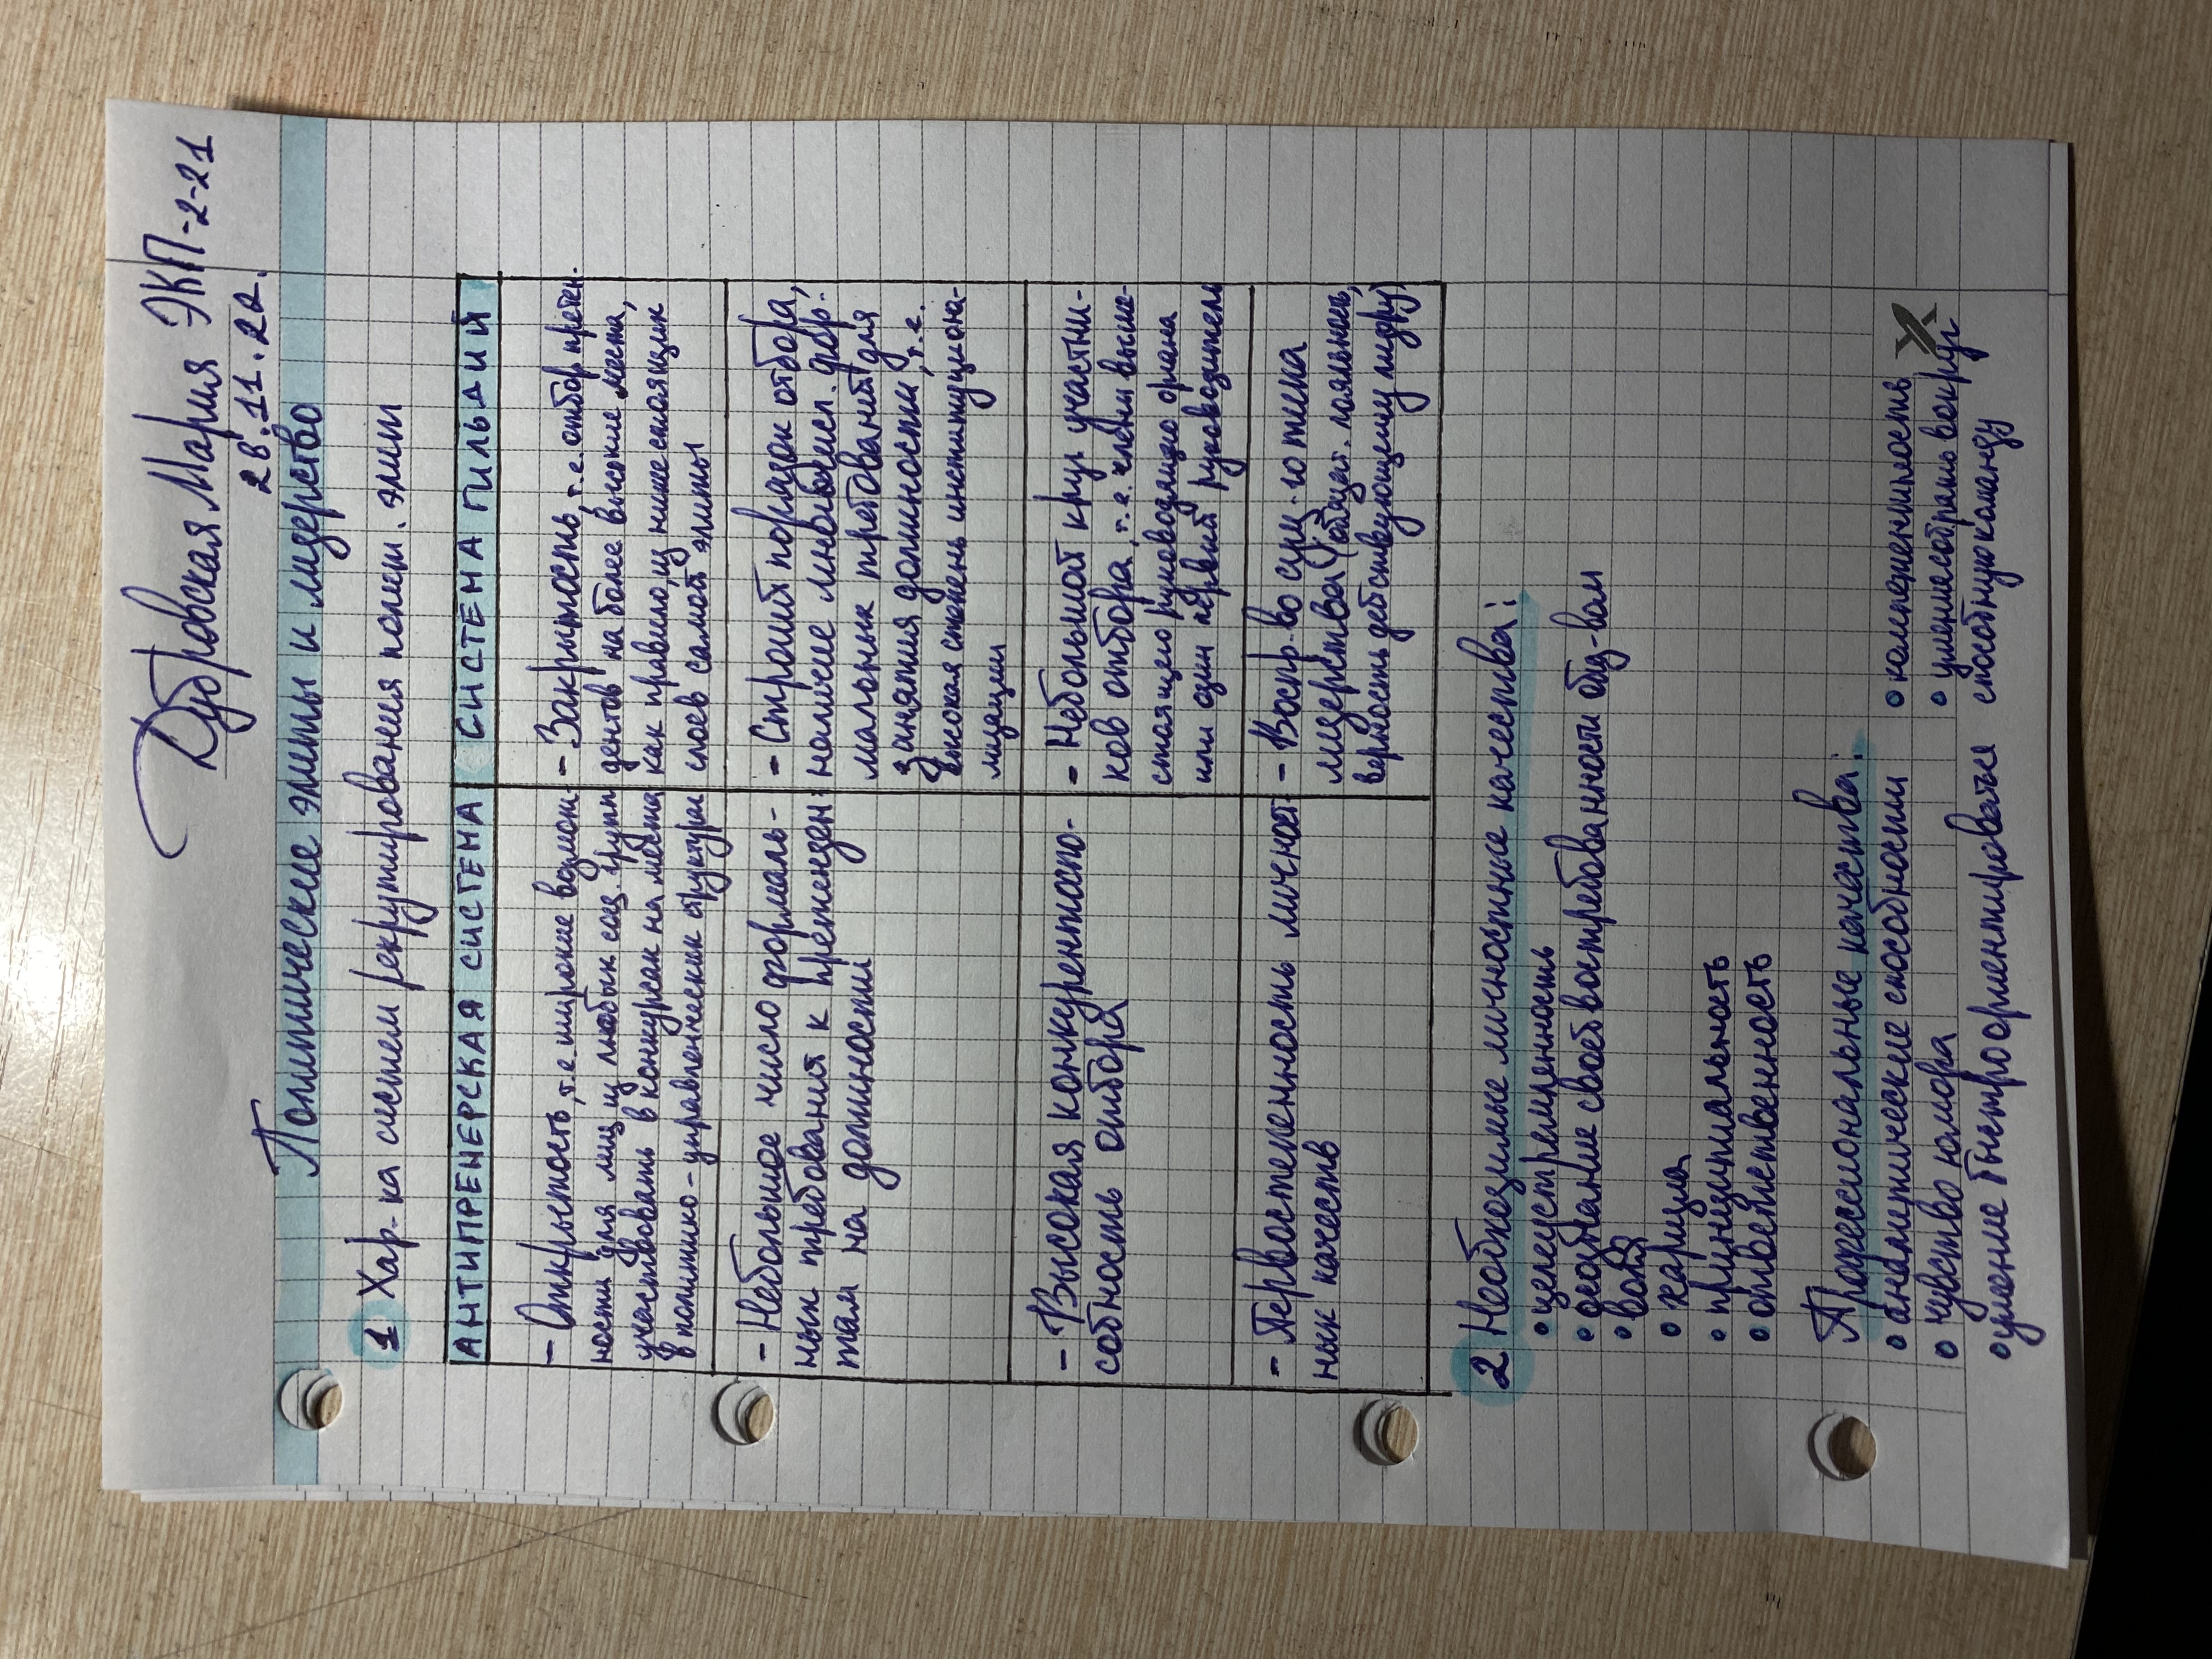 Дубровская Мария ЭКП-2-21
28.11.22.
Политические элиты и лидерство
1 Хар-ка систем рекрутирования полит. элит
АНТИПРЕНЕРСКАЯ СИСТЕМА
- Открытость, т.е. широкие возмож-
ности для лиц из любых соц. групп
участвовать в конкурсах на места
в политико-управленческих структурах
- Небольшое число формаль-
ных требования к претенден-
там на должности
- Высокая конкурентоспо-
собность отбора
- Первостепенность личност-
ных качеств
СИСТЕМА ГИЛЬДИЙ
- Закрытость, т.е. отбор претен.
дентов на более высокие места,
как правило, из нижестоящих
слоев самой элиты
- Строгий порядок отбора,
наличие многочисл. фор.
мальных требований для
занятия должности, т.е.
высокая степень институциона-
лизации
- Небольшой круг участни-
ков отбора, т.е. члены выше-
стоящего руководящего органа
или один первый руководитель
- Воспр-во сущ.-го типа
лидерства (обязат. лояльность,
верность действующему лидеру)
2 Необходимые личностные качества:
• целеустремленность
• осознание своей востребованности общ-вом
• воля
• харизма
• принципиальность
• ответственность
Профессиональные качества:
• аналитические способности
• чувство юмора
• умение быстро ориентироваться
• компетентность
• умение собрать вокруг
способную команду